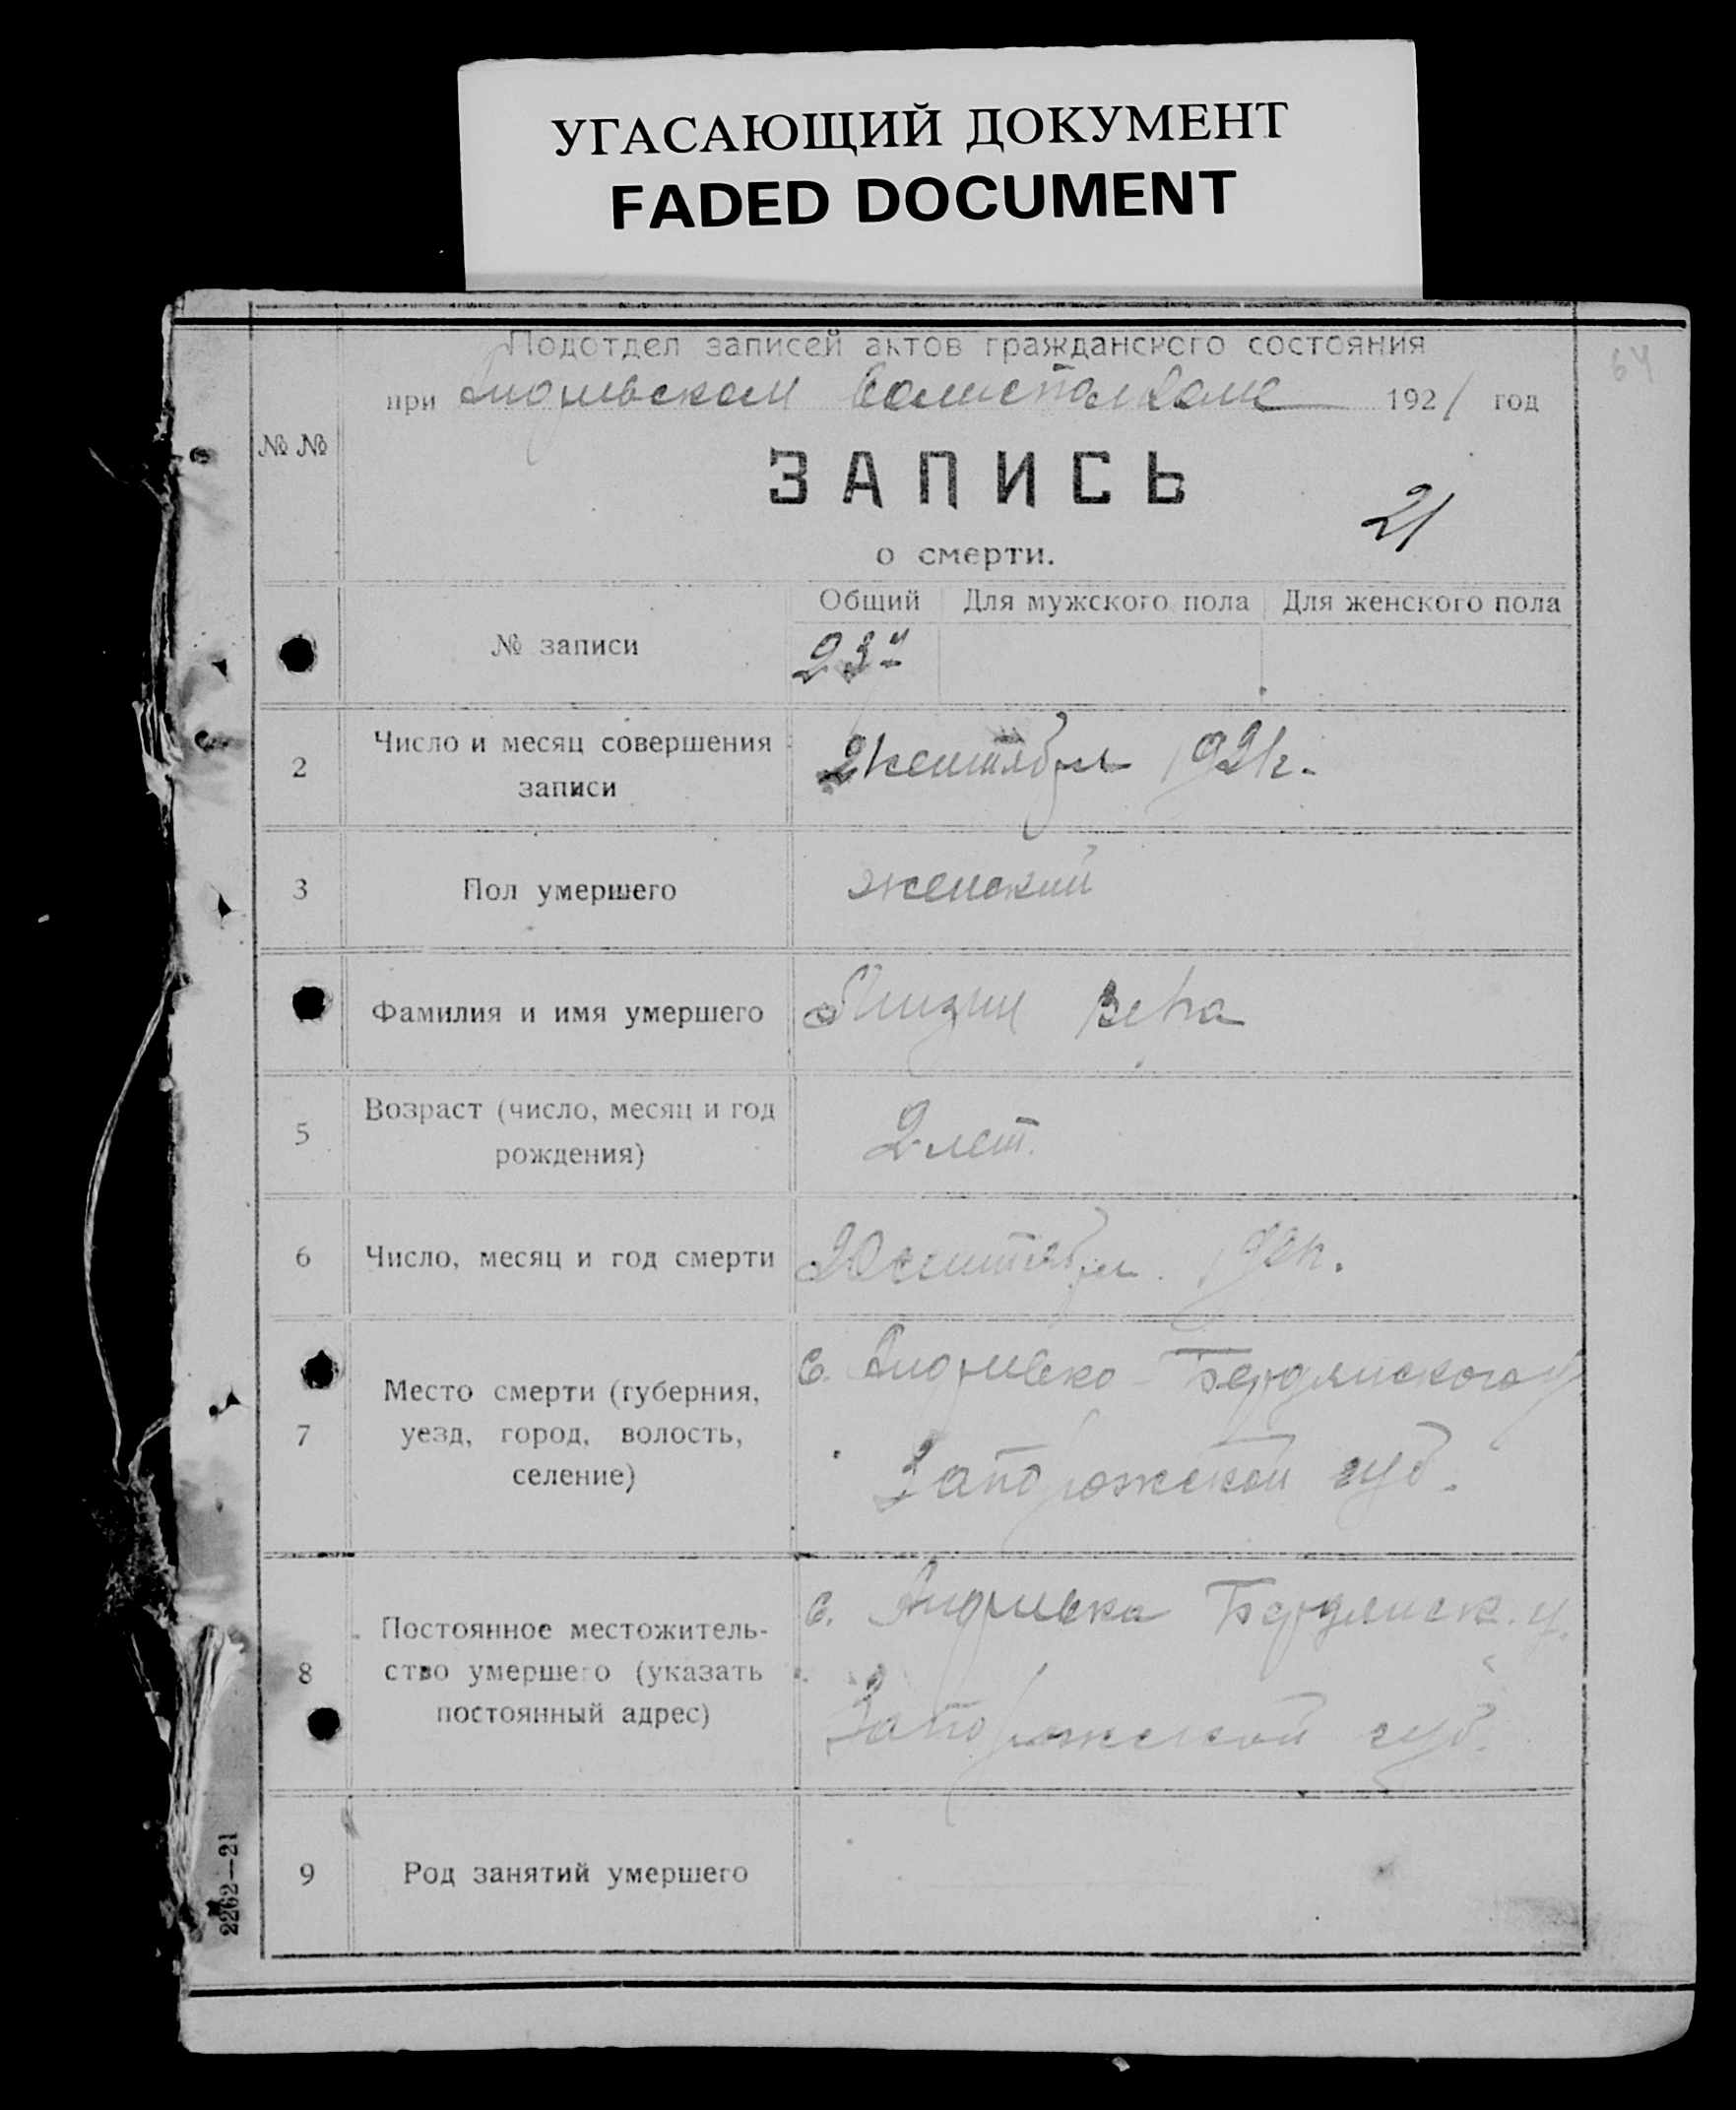 УГАСАЮЩИЙ ДОКУМЕНТ
FADED DOCUMENT
64
Подотдел записей актов гражданского состояния
при 1921 год
№ №
ЗАПИСЬ
21
о смерти.
Общий Для мужского пола Для женского пола
№ записи 23
2 Число и месяц совершения записи 21 сентября 1921 г.
3 Пол умершего женский
Фамилия и имя умершего Вера
5 Возраст (число, месяц и год рождения) 2 лет.
6 Число, месяц и год смерти 20 сентября 1921 г.
7 Место смерти (губерния, уезд, город, волость, селение) с. Андривко Бердянского у
Запорожской губ.
8 Постоянное местожительство умершего (указать постоянный адрес) с. Андривка Бердянск. у.
Запорожской губ.
9 Род занятий умершего
2262—21